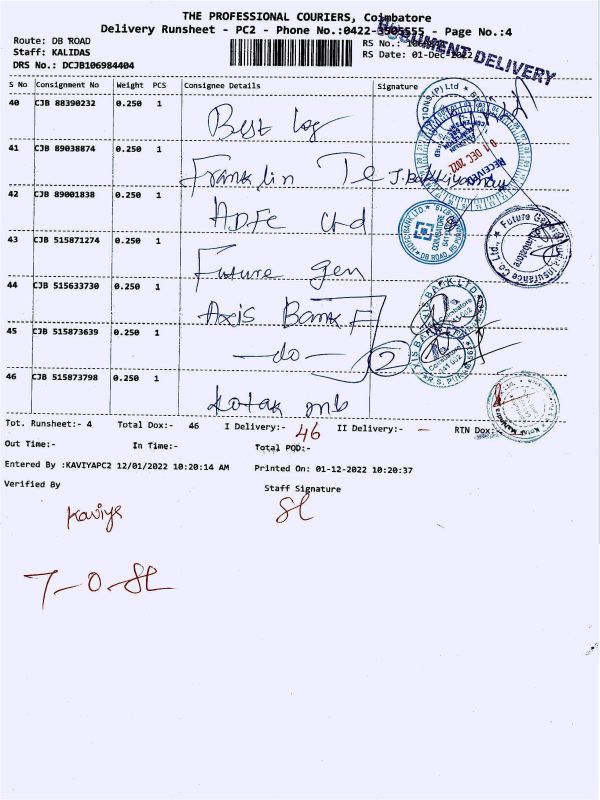 THE PROFESSIONAL COURIERS, Coimbatore
Delivery Runsheet - PC2 - Phone No.:0422-3505555 - Page No.:4
DOCUMENT DELIVERY
Route: DB ROAD
RS No.:
Staff: KALIDAS
RS Date: 01-Dec-2022
DRS No.: DCJB106984404
S No Consignment No Weight PCS Consignee Details Signature
40 CJB 88390232 0.250 1
Best Log
01 DEC 2022
RECEIVED
41 CJB 89038874 0.250 1
Franklin Te
42 CJB 89001838 0.250 1
HDFC Ltd
HDFC BANK LTD.
COIMBATORE
DB ROAD
43 CJB 515871274 0.250 1
Future gen
Future General
Insurance Co. Ltd.,
Coimbatore
44 CJB 515633730 0.250 1
Axis Bank F
AXIS BANK LTD
Coimbatore
45 CJB 515873639 0.250 1
-do-
2
AXIS BANK
Coimbatore
R S. PUR
46 CJB 515873798 0.250 1
kotak mb
Tot. Runsheet:- 4 Total Dox:- 46 I Delivery:- 46 II Delivery:- - RTN Dox:
Out Time:- In Time:- Total POD:-
Entered By :KAVIYAPC2 12/01/2022 10:20:14 AM Printed On: 01-12-2022 10:20:37
Verified By Staff Signature
Kaviya